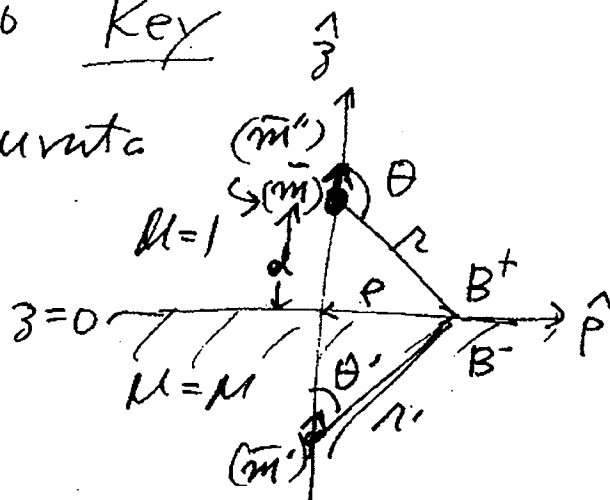 Key
ẑ
(m̄")
(m̄) θ
μ=1
d r
ρ B⁺
z=0 ρ̂
B⁻
μ=μ
θ' r'
(m̄')